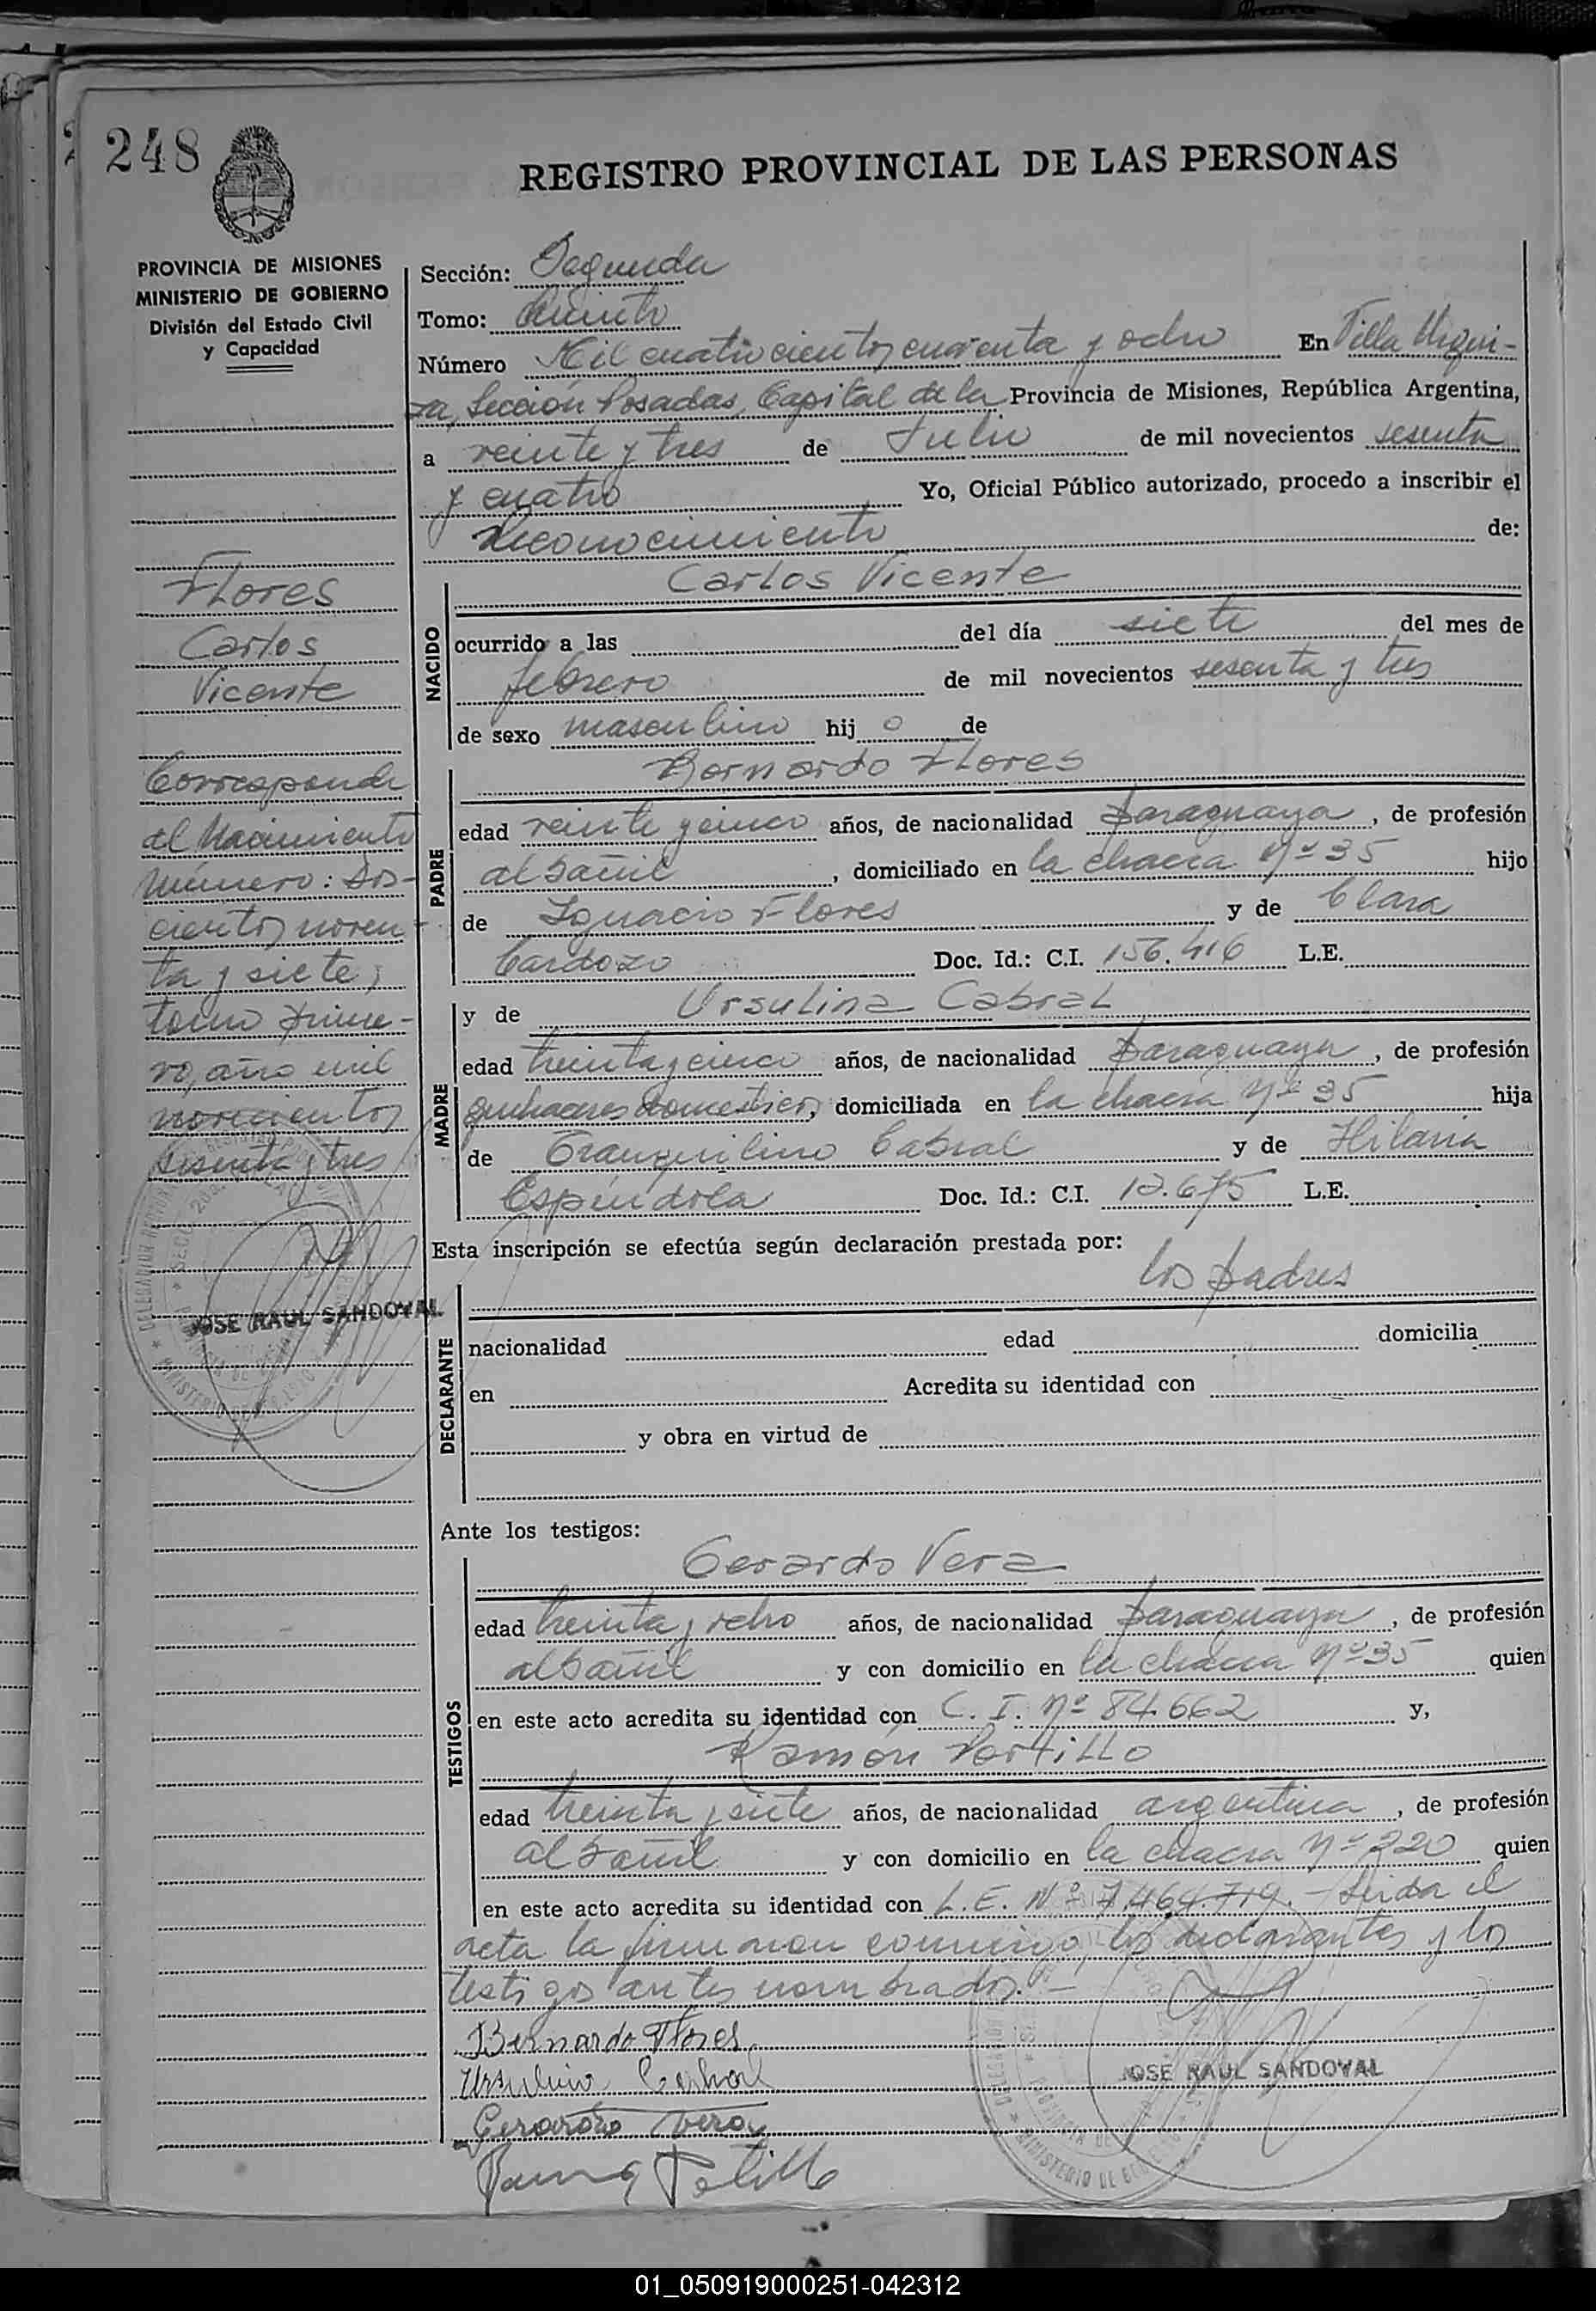 248
REGISTRO PROVINCIAL DE LAS PERSONAS
PROVINCIA DE MISIONES
MINISTERIO DE GOBIERNO
División del Estado Civil
y Capacidad
Flores
Carlos
Vicente
Corresponde
al Nacimiento
número: Dos-
cientos noven-
ta y siete,
tomo prime-
ro, año mil
novecientos
sesenta y tres
JOSE RAUL SANDOVAL
Sección: Segunda
Tomo: Quinto
Número Mil cuatrocientos cuarenta y ocho En Villa Urqui-
za, Sección Posadas, Capital de la Provincia de Misiones, República Argentina,
a veinte y tres de Julio de mil novecientos sesenta
y cuatro Yo, Oficial Público autorizado, procedo a inscribir el
Reconocimiento de:
NACIDO
Carlos Vicente
ocurrido a las del día siete del mes de
febrero de mil novecientos sesenta y tres
de sexo masculino hij o de
PADRE
Bernardo Flores
edad veinte y cinco años, de nacionalidad paraguaya, de profesión
albañil, domiciliado en la chacra Nº 35 hijo
de Ignacio Flores y de Clara
Cardozo Doc. Id.: C.I. 156.416 L.E.
MADRE
y de Ursulina Cabral
edad treinta y cinco años, de nacionalidad paraguaya, de profesión
quehaceres domesticos, domiciliada en la chacra Nº 35 hija
de Tranquilino Cabral y de Hilaria
Espíndola Doc. Id.: C.I. L.E.
Esta inscripción se efectúa según declaración prestada por:
los padres
DECLARANTE
nacionalidad edad domicilia
en Acredita su identidad con
y obra en virtud de
Ante los testigos:
TESTIGOS
Gerardo Vera
edad treinta y ocho años, de nacionalidad paraguaya, de profesión
albañil y con domicilio en la chacra Nº 35 quien
en este acto acredita su identidad con C. I. Nº 84.662 y,
Ramón Portillo
edad treinta y siete años, de nacionalidad argentina, de profesión
albañil y con domicilio en la chacra Nº 220 quien
en este acto acredita su identidad con L.E. Nº 7.464.719.- Leida el
acta la firmaron conmigo, los declarantes y los
testigos antes nombrados.-
Bernardo Flores
Ursulina Cabral
JOSE RAUL SANDOVAL
Gerardo Vera
Ramon Portillo
01_050919000251-042312